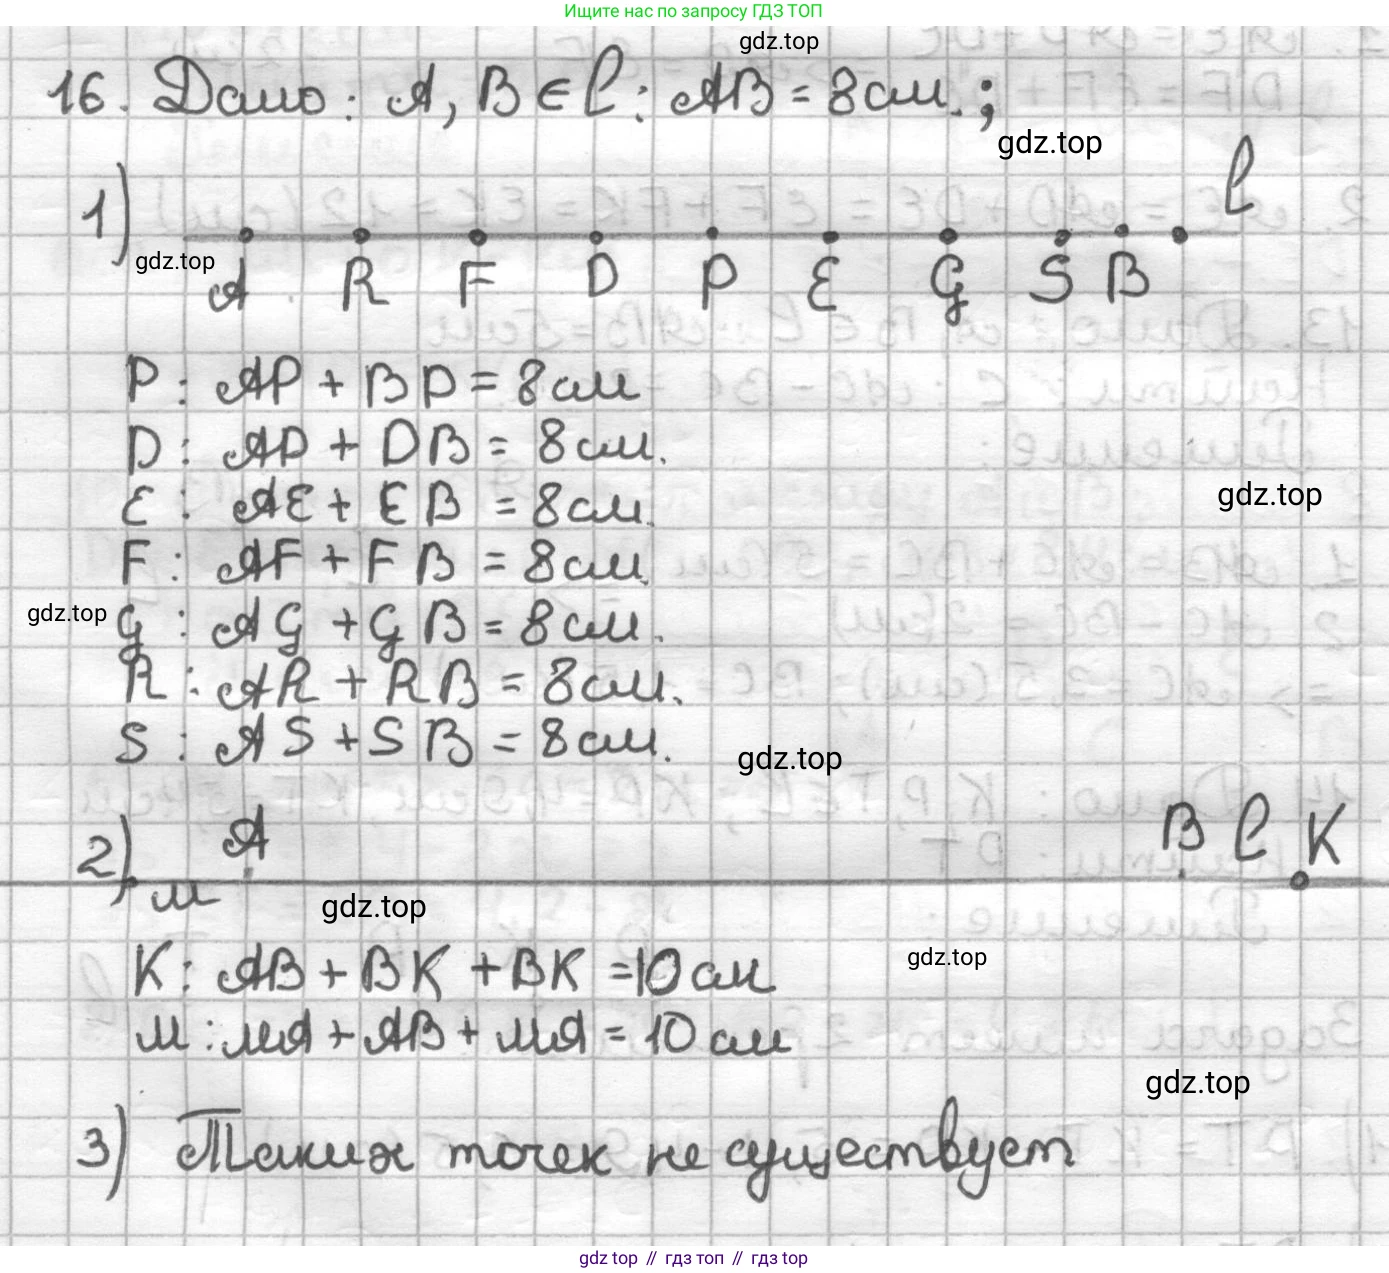 Ищите нас по запросу ГДЗ ТОП
gdz.top
16. Дано: A, B ∈ l: AB = 8 см.;
gdz.top
1)
l
gdz.top
A R F D P E G S B
P: AP + BP = 8 см
D: AD + DB = 8 см.
gdz.top
E: AE + EB = 8 см.
F: AF + FB = 8 см.
gdz.top
G: AG + GB = 8 см.
R: AR + RB = 8 см.
S: AS + SB = 8 см.
gdz.top
2) M A B l K
gdz.top
gdz.top
K: AB + BK + BK = 10 см
M: MA + AB + MA = 10 см
gdz.top
3) Таких точек не существует
gdz.top // гдз топ // гдз top